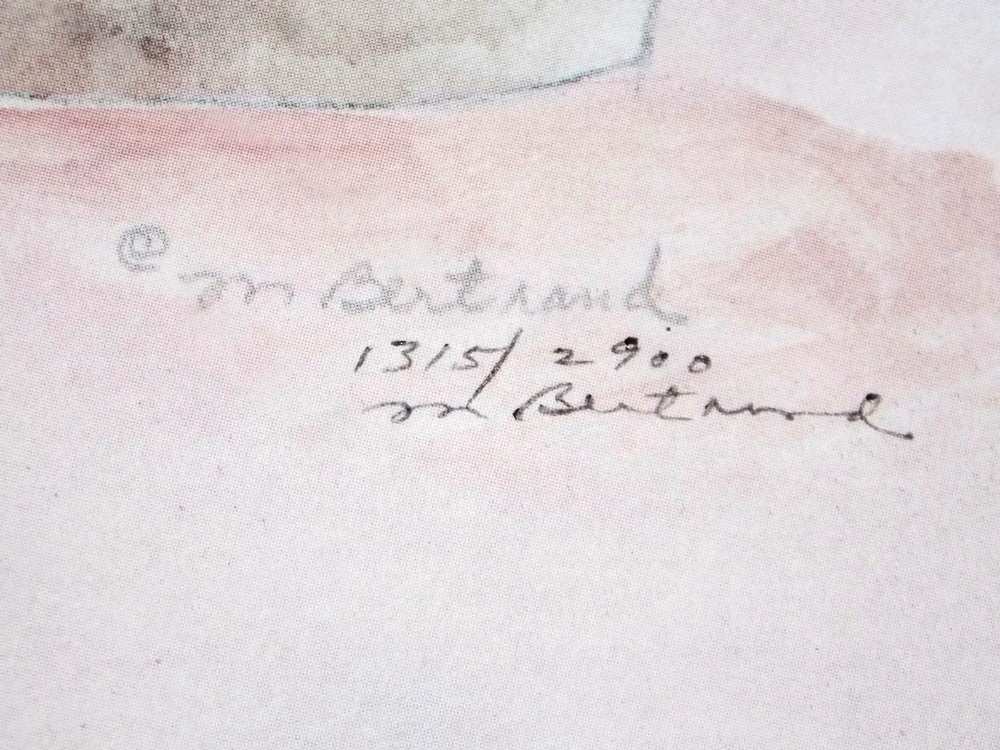 © m Bertrand
1315/2900
m Bertrand